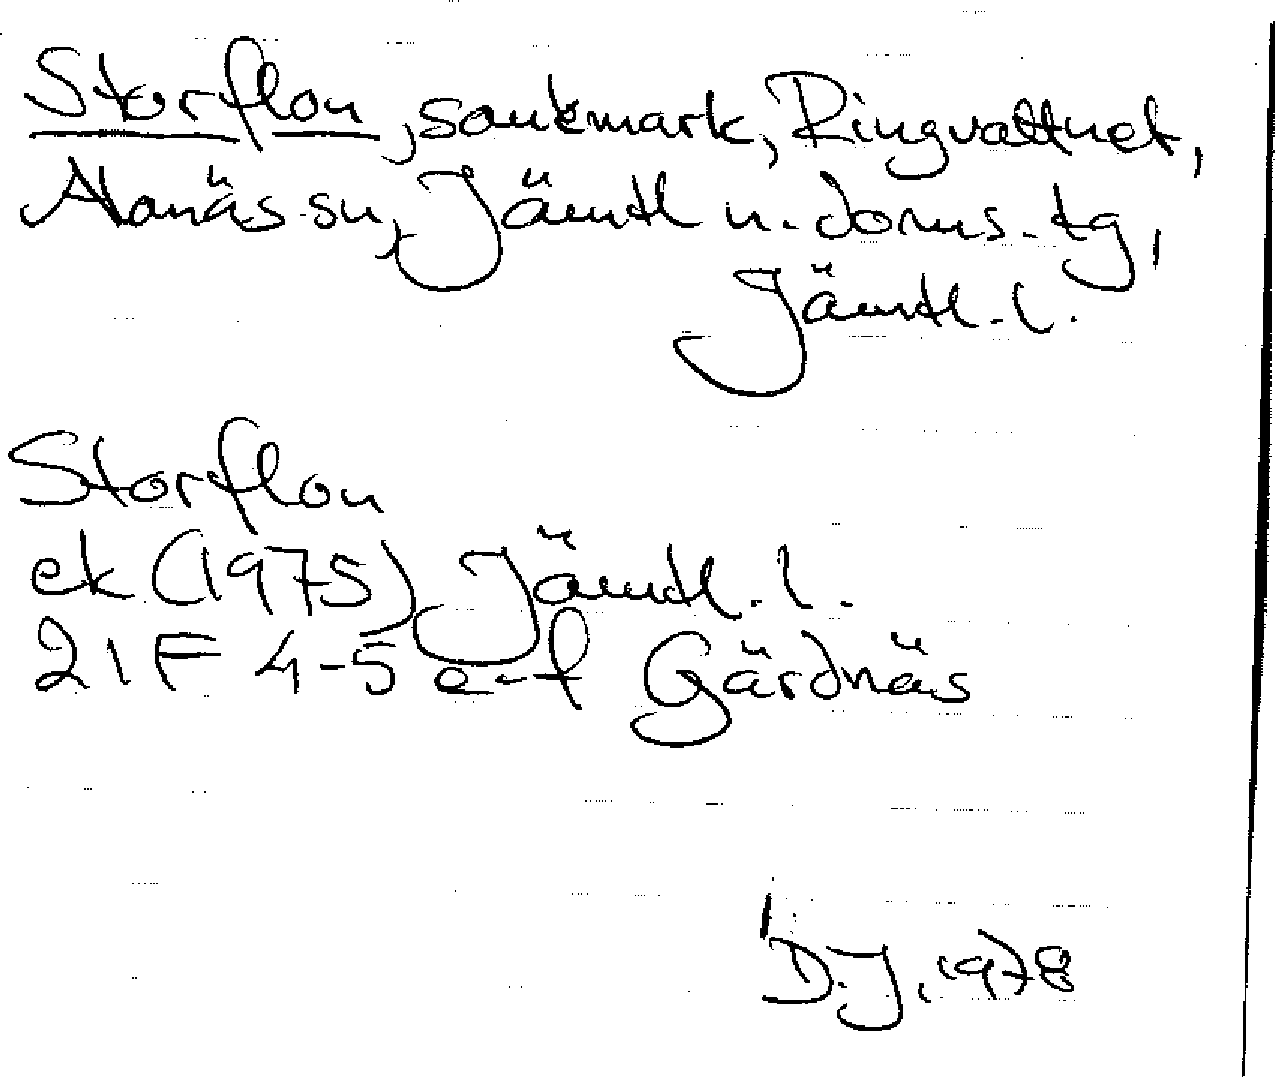 Storflon, sankmark, Ringvattnet,
Alanäs sn, Jämtl n. doms. tg,
Jämtl. l.
Storflon
ek (1975) Jämtl. l.
21F 4-5 e-f Gärdnäs
D.J. 1978